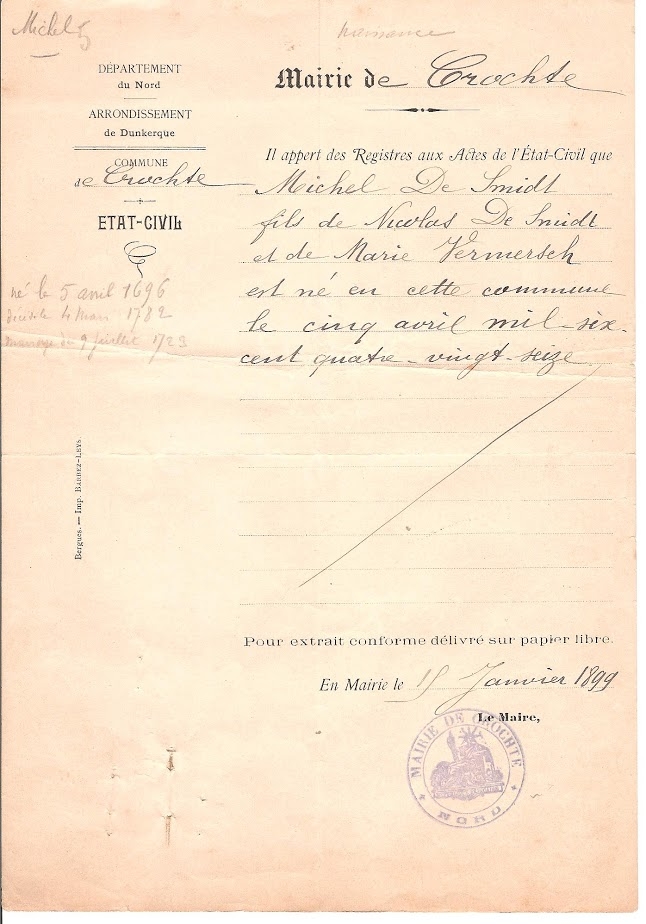 Michel 5
naissance
DÉPARTEMENT
du Nord
ARRONDISSEMENT
de Dunkerque
COMMUNE
de Crochte
ETAT-CIVIL
né le 5 avril 1696
décédé le 4 Mars 1782
mariage du 9 juillet 1723
Bergues. — Imp. BARBEZ-LEYS.
Mairie de Crochte
Il appert des Registres aux Actes de l'État-Civil que
Michel De Smidt
fils de Nicolas De Smidt
et de Marie Vermersch
est né en cette commune
le cinq avril mil-six-
cent quatre-vingt-seize
Pour extrait conforme délivré sur papier libre.
En Mairie le 15 Janvier 1899
Le Maire,
MAIRIE DE CROCHTE
NORD